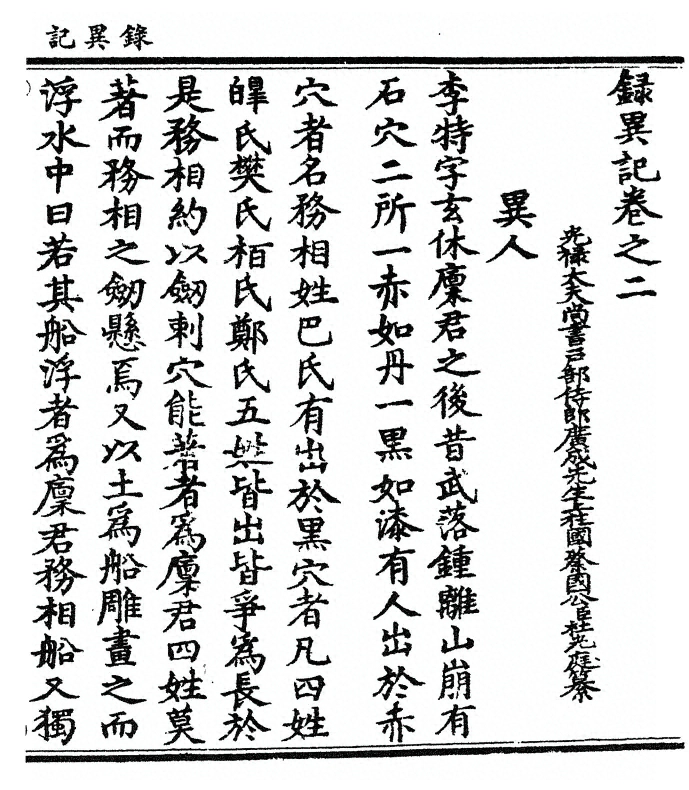 錄異記
録異記卷之二
光禄大夫尚書戸部侍郎廣成先生上柱國蔡國公臣杜光庭纂
異人
李特字玄休廩君之後昔武落鍾離山崩有
石穴二所一赤如丹一黒如漆有人出於赤
穴者名務相姓巴氏有出於黒穴者凡四姓
皡氏樊氏栢氏鄭氏五姓皆出皆爭爲長於
是務相約以劒刺穴能著者爲廩君四姓莫
著而務相之劒懸焉又以土爲船雕畫之而
浮水中曰若其船浮者爲廩君務相船又獨